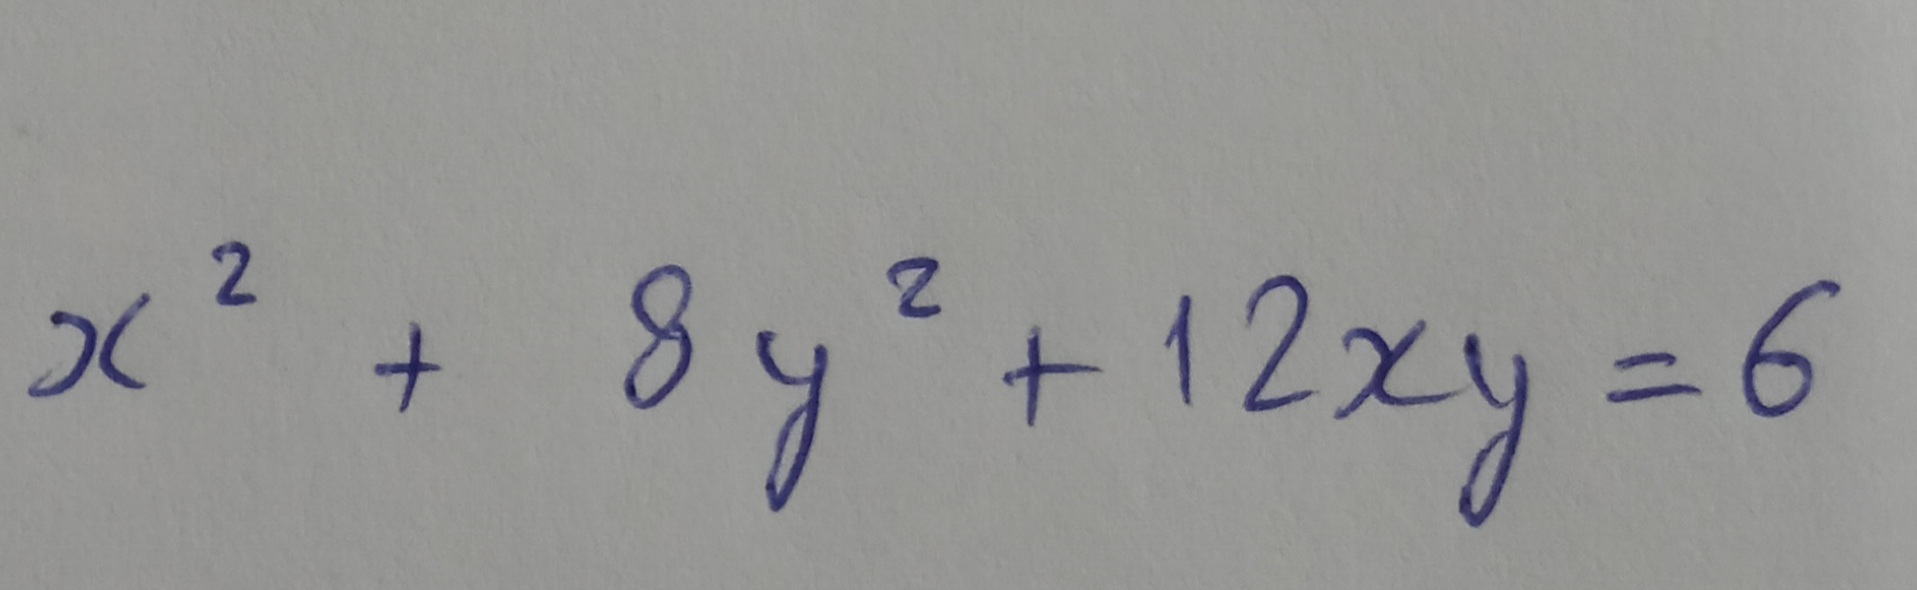 x² + 8y² + 12xy = 6